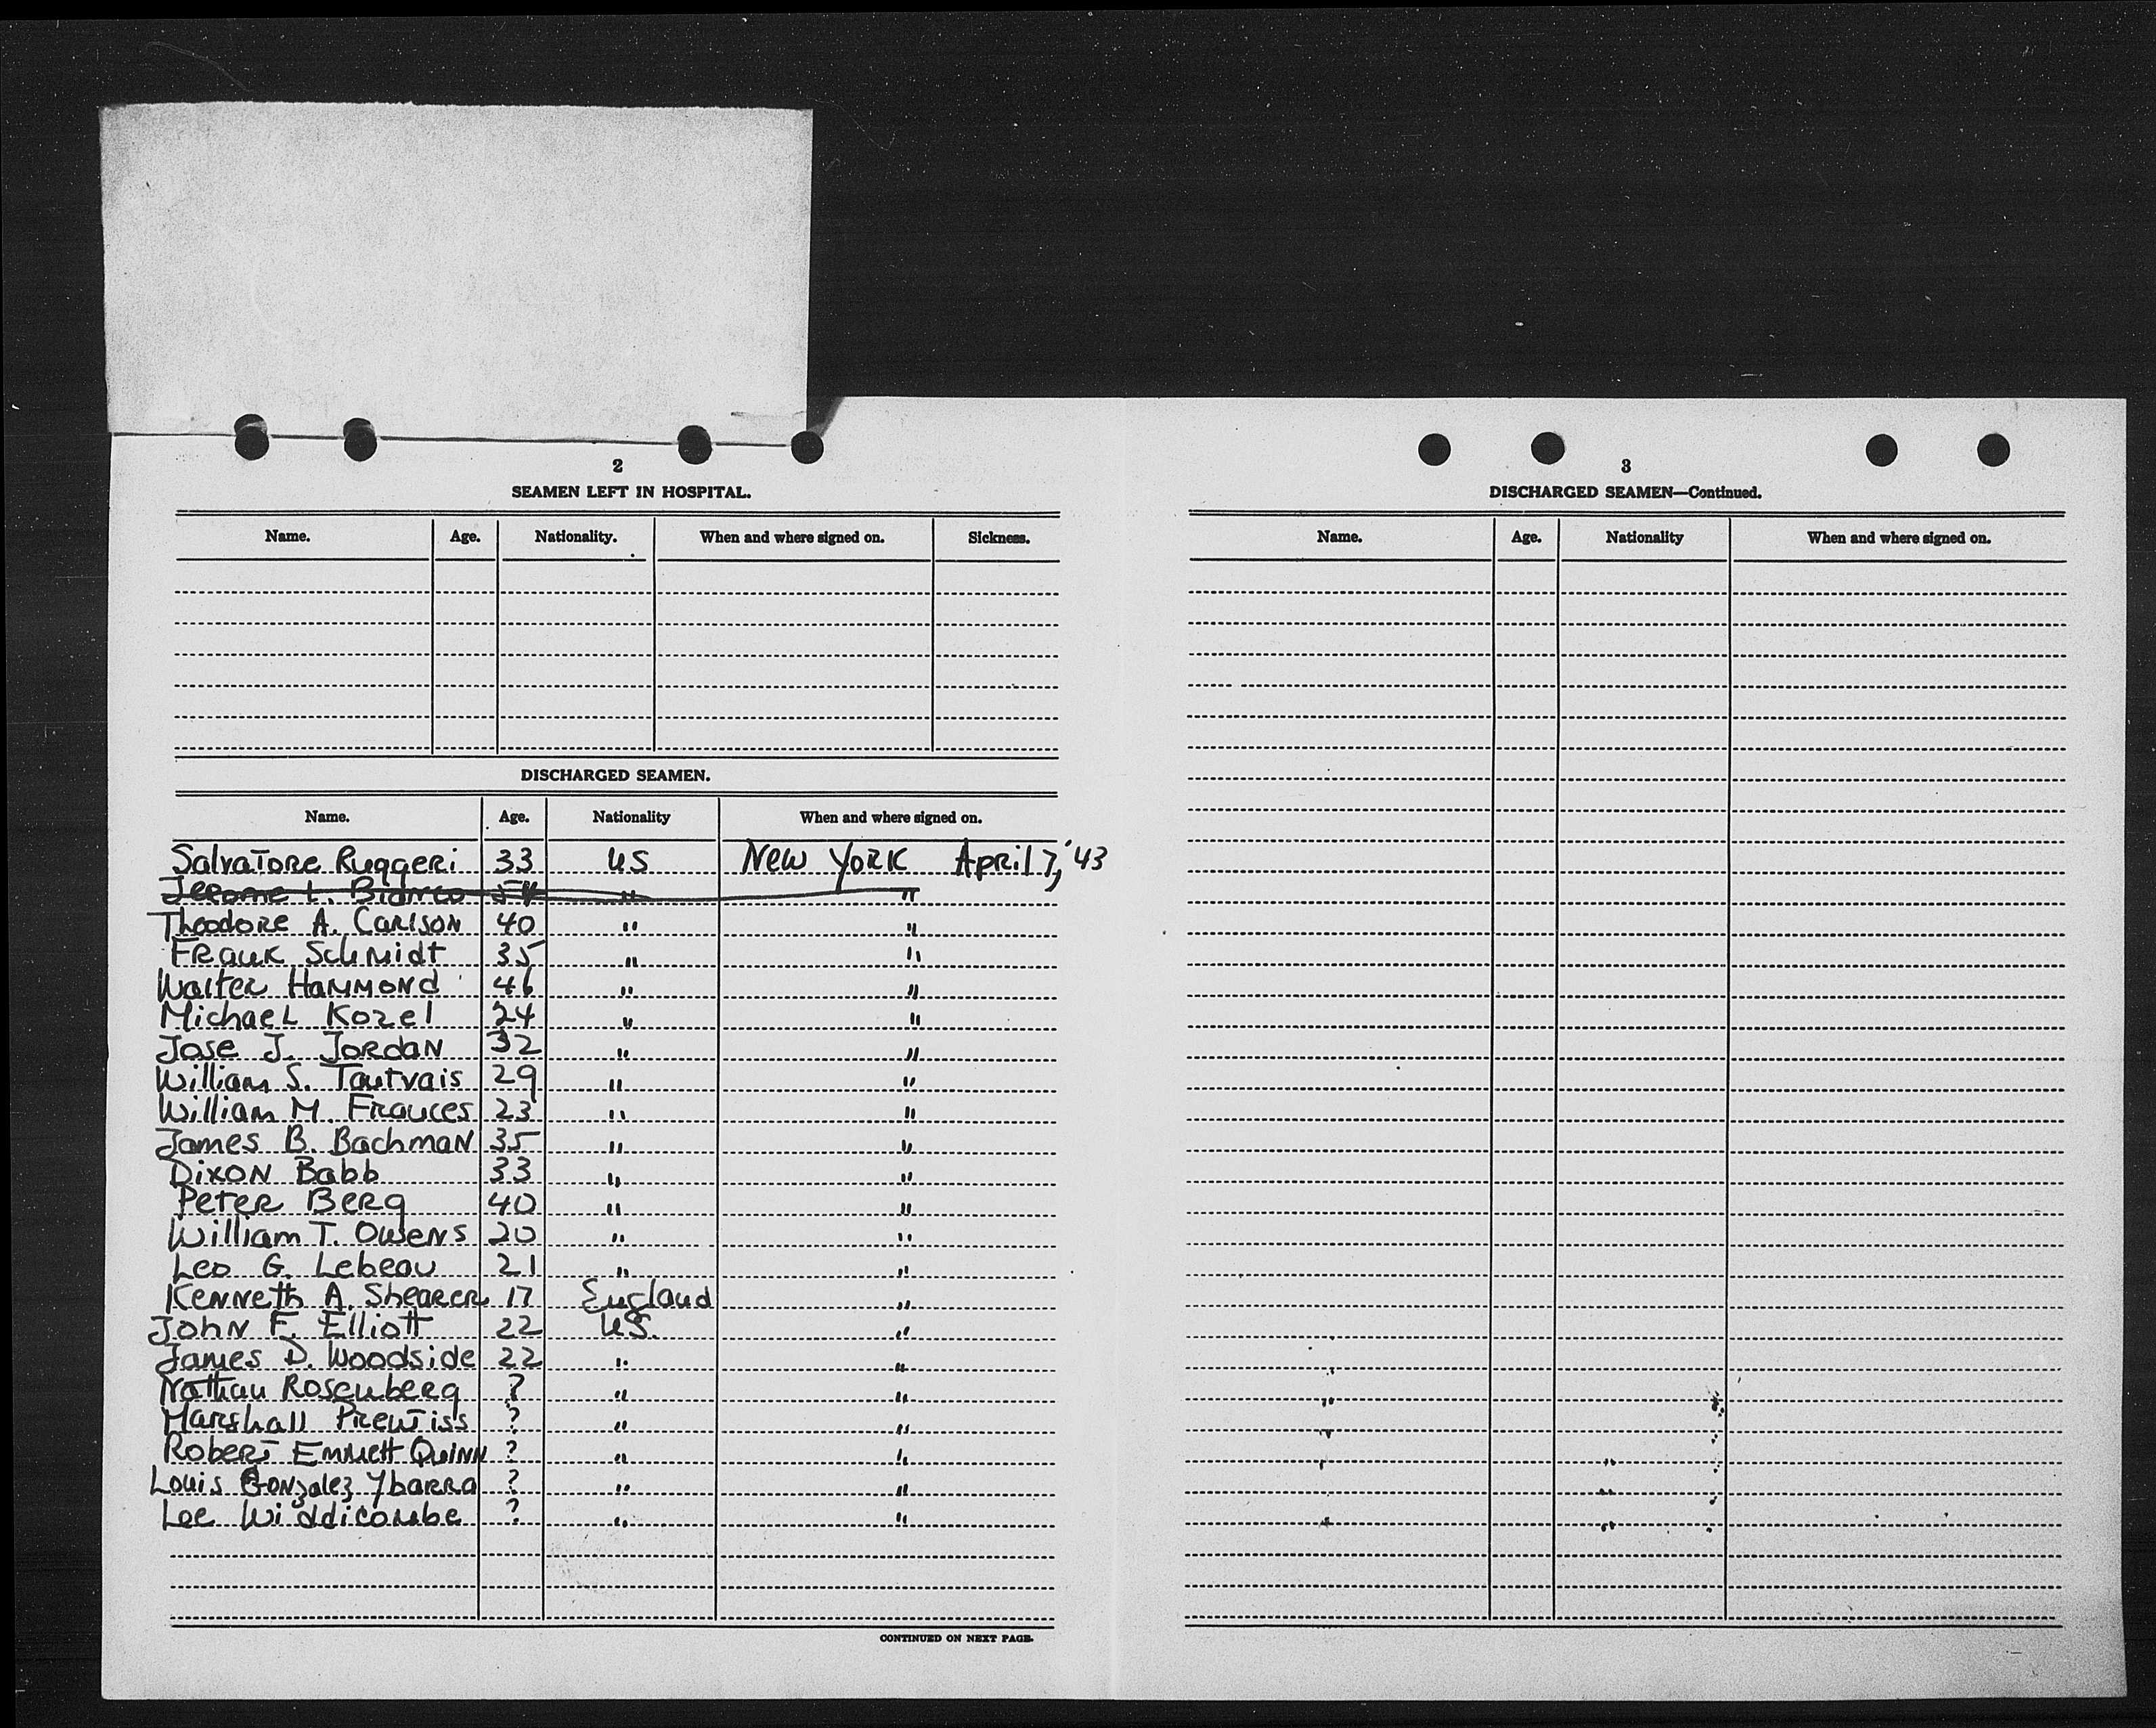 2
SEAMEN LEFT IN HOSPITAL.
Name. Age. Nationality. When and where signed on. Sickness.
DISCHARGED SEAMEN.
Name. Age. Nationality When and where signed on.
Salvatore Ruggeri 33 US New York April 7, '43
Jerome L. Bianco 54 " "
Theodore A. Carlson 40 " "
Frank Schmidt 35 " "
Walter Hammond 46 " "
Michael Kozel 24 " "
Jose J. Jordan 32 " "
William S. Tautvais 29 " "
William M. Frances 23 " "
James B. Bachman 35 " "
Dixon Babb 33 " "
Peter Berg 40 " "
William T. Owens 20 " "
Leo G. Lebeau 21 " "
Kenneth A. Shearer 17 England "
John F. Elliott 22 US. "
James D. Woodside 22 " "
Nathan Rosenberg ? " "
Marshall Prentiss ? " "
Robert Emmett Quinn ? " "
Louis Gonzalez Ybarra ? " "
Lee Widdicombe ? " "
CONTINUED ON NEXT PAGE.
3
DISCHARGED SEAMEN—Continued.
Name. Age. Nationality When and where signed on.